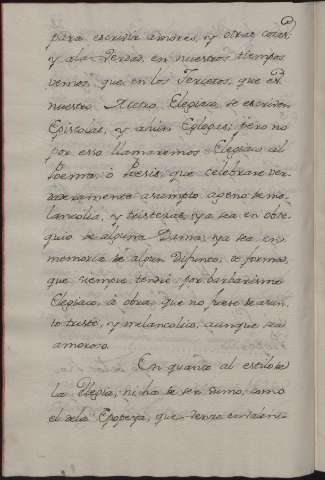 para escrivir amores, y otras cosas;
y ala verdad, en nuestros tiempos
vemos, que en los Tercetos, que es
nuestro Metro Elegiaco, se escriven
Epistolas, y aùn Eglogas; pero no
por esso llamaremos Elegiaco al
Poema, ò Poesia, que celebrare ver-
daderamente asumpto ageno de me-
lancolia, y tristezas, ya sea en obse-
quio de alguna Dama, ya sea en
memoria de algun Difunto, de forma,
que siempre tendrè por barbarismo
Elegiaco, à obra, que no fuese de asun-
to triste, y melancolico, aunque sea
amoroso.
En quanto al estilo de
la Elegia, ni ha de ser sumo, como
el dela Epopeya, que